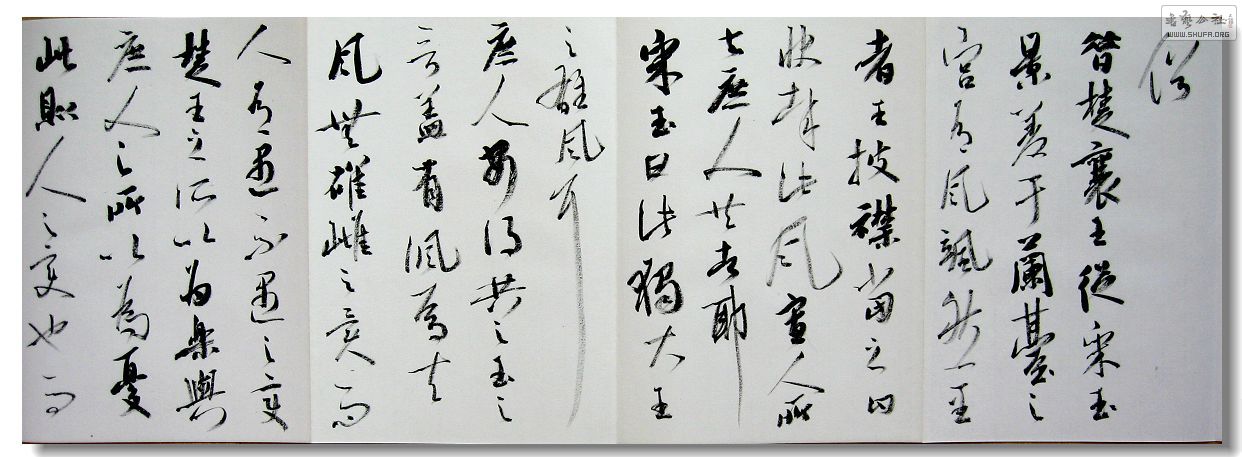 俗
昔楚襄王從宋玉
景差于蘭臺之
宮有風颯然至
者王披襟當之曰
快哉此風寡人所
与庶人共者耶
宋玉曰此獨大王
之雄風耳
庶人安得共之玉之
言蓋有諷焉夫
風無雄雌之異而
人有遇不遇之變
楚王之所以为樂與
庶人之所以為憂
此則人之變也而
书艺公社
WWW.SHUFA.ORG